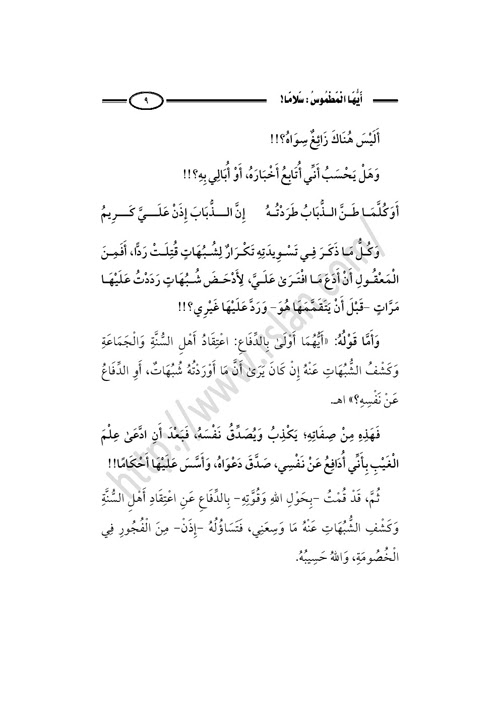 أَيُّهَا الْمَطْمُوسُ: سَلَامًا!
٩
أَلَيْسَ هُنَاكَ زَائِغٌ سِوَاهُ؟!!
وَهَلْ يَحْسَبُ أَنِّي أُتَابِعُ أَخْبَارَهُ، أَوْ أُبَالِي بِهِ؟!!
أَوَكُلَّمَا طَنَّ الذُّبَابُ طَرَدْتُهُ إِنَّ الذُّبَابَ إِذَنْ عَلَيَّ كَرِيمُ
وَكُلُّ مَا ذَكَرَ فِي تَسْوِيدَتِهِ تَكْرَارٌ لِشُبُهَاتٍ قُتِلَتْ رَدًّا، أَفَمِنَ
الْمَعْقُولِ أَنْ أَدَعَ مَا افْتَرَىٰ عَلَيَّ، لِأَدْحَضَ شُبُهَاتٍ رَدَدْتُ عَلَيْهَا
مَرَّاتٍ -قَبْلَ أَنْ يَتَقَمَّمَهَا هُوَ- وَرَدَّ عَلَيْهَا غَيْرِي؟!!
وَأَمَّا قَوْلُهُ: «أَيُّهُمَا أَوْلَىٰ بِالدِّفَاعِ: اعْتِقَادُ أَهْلِ السُّنَّةِ وَالْجَمَاعَةِ
وَكَشْفُ الشُّبُهَاتِ عَنْهُ إِنْ كَانَ يَرَىٰ أَنَّ مَا أَوْرَدْتُهُ شُبُهَاتٌ، أَوِ الدِّفَاعُ
عَنْ نَفْسِهِ؟» اهـ.
فَهَذِهِ مِنْ صِفَاتِهِ؛ يَكْذِبُ وَيُصَدِّقُ نَفْسَهُ، فَبَعْدَ أَنِ ادَّعَىٰ عِلْمَ
الْغَيْبِ بِأَنِّي أُدَافِعُ عَنْ نَفْسِي، صَدَّقَ دَعْوَاهُ، وَأَسَّسَ عَلَيْهَا أَحْكَامًا!!
ثُمَّ، قَدْ قُمْتُ -بِحَوْلِ اللهِ وَقُوَّتِهِ- بِالدِّفَاعِ عَنِ اعْتِقَادِ أَهْلِ السُّنَّةِ
وَكَشْفِ الشُّبُهَاتِ عَنْهُ مَا وَسِعَنِي، فَتَسَاؤُلُهُ -إِذَنْ- مِنَ الْفُجُورِ فِي
الْخُصُومَةِ، وَاللهُ حَسِيبُهُ.
http://www.rslan.com/